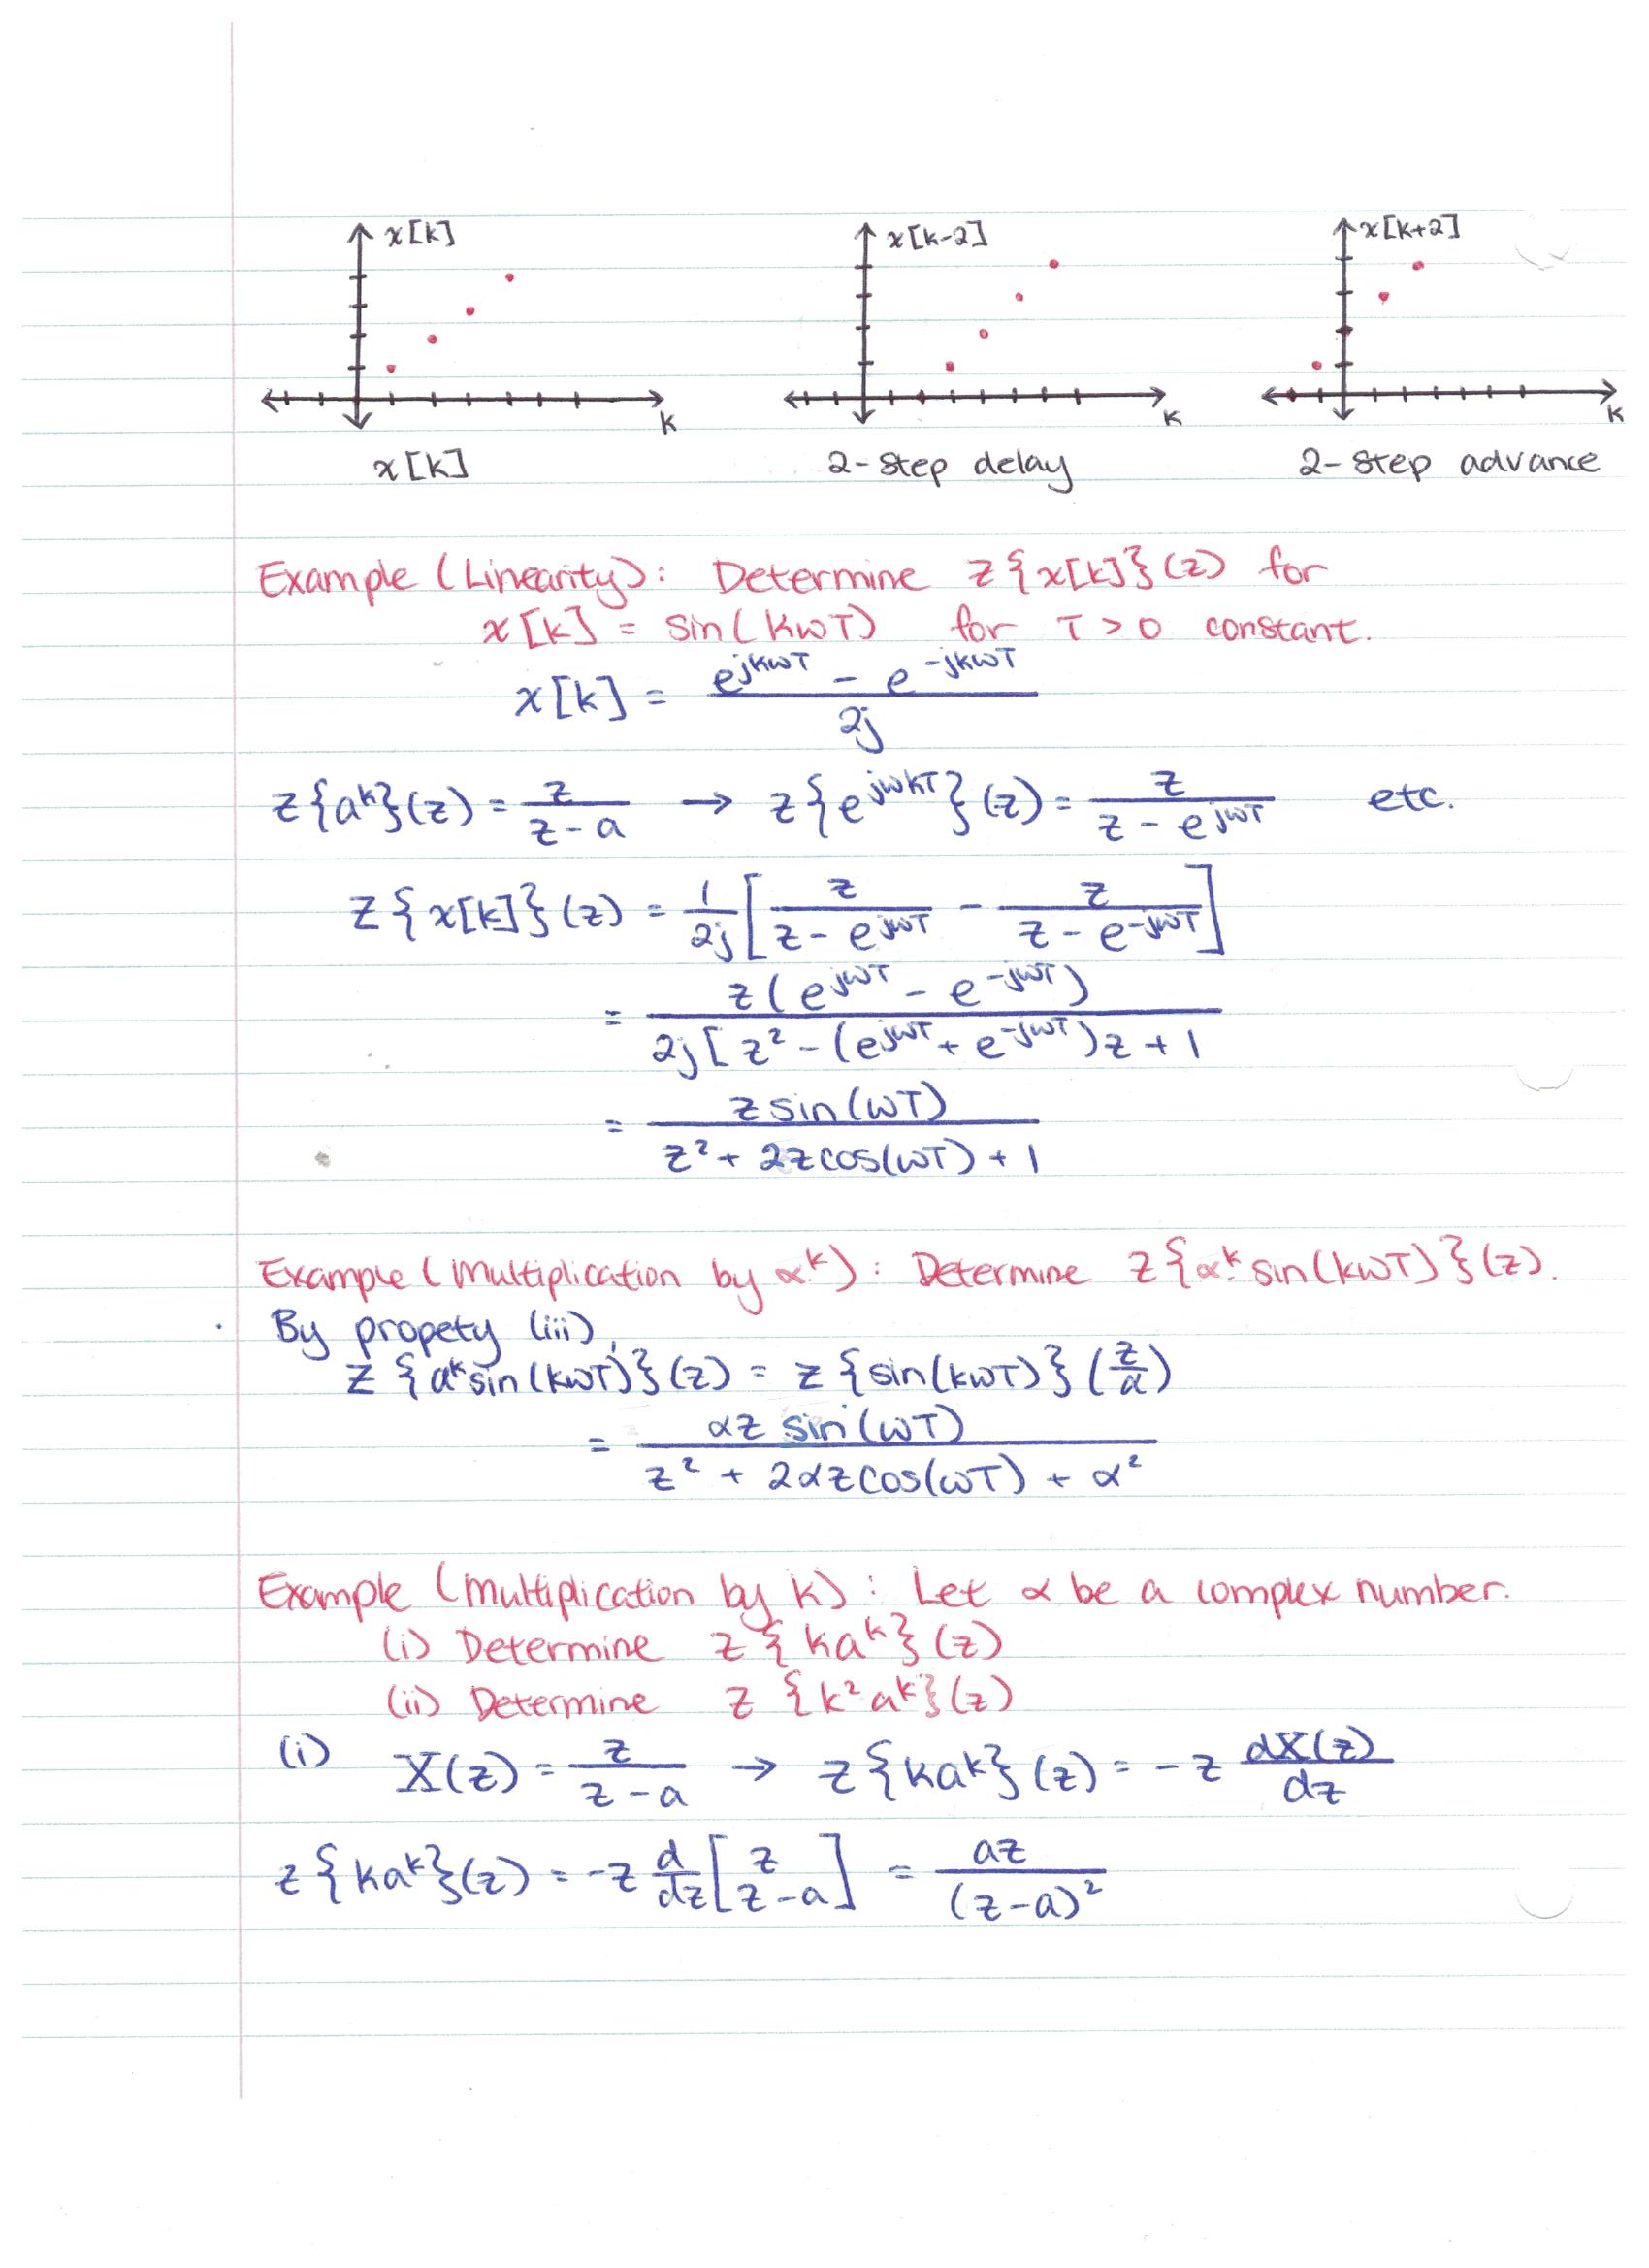 x[k] x[k-2] x[k+2]
k k k
x[k] 2-step delay 2-step advance
Example (Linearity): Determine z{x[k]}(z) for
x[k] = sin(kωT) for T > 0 constant.
x[k] = (e^{jkωT} - e^{-jkωT}) / 2j
z{a^k}(z) = z/(z-a) → z{e^{jωkT}}(z) = z/(z - e^{jωT}) etc.
z{x[k]}(z) = 1/2j [z/(z - e^{jωT}) - z/(z - e^{-jωT})]
= z(e^{jωT} - e^{-jωT}) / 2j[z² - (e^{jωT} + e^{-jωT})z + 1
= z sin(ωT) / z² + 2z cos(ωT) + 1
Example (multiplication by α^k): Determine z{α^k sin(kωT)}(z).
By propety (iii),
z{a^k sin(kωT)}(z) = z{sin(kωT)}(z/α)
= αz sin(ωT) / z² + 2αz cos(ωT) + α²
Example (multiplication by k): Let α be a complex number.
(i) Determine z{ka^k}(z)
(ii) Determine z{k²a^k}(z)
(i) X(z) = z/(z-a) → z{ka^k}(z) = -z dX(z)/dz
z{ka^k}(z) = -z d/dz [z/z-a] = az/(z-a)²